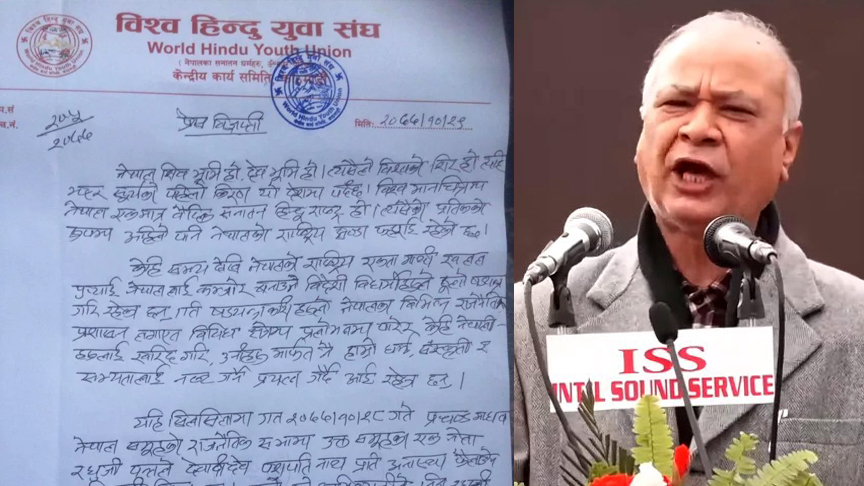 विश्व हिन्दु युवा संघ
World Hindu Youth Union
( नेपालका सनातन धर्महरु,
केन्द्रीय कार्य समिति
World Hindu Youth Union
प.सं
च.नं.
प्रेस विज्ञप्ती
मिति:- २०७७/१०/२९
नेपाल शिव भूमि हो, देव भूमि हो। त्यसैले विश्वको शिर हो
सूर्यको पहिलो किरण यो देशमा पर्दछ। विश्व मानचित्रमा
नेपाल एकमात्र वैदिक सनातन हिन्दु राष्ट्र हो। त्यसैको प्रतिकको
रूपमा अहिले पनि नेपालको राष्ट्रिय झण्डा फहराई रहेको छ।
केही समय देखि नेपालको राष्ट्रिय एकता माथी खलल
पुर्‍याई नेपाललाई कमजोर बनाउने विदेशी विधर्मीहरूले ठूलो षड्यन्त्र
गरि रहेका छन्। ति षड्यन्त्रकारी हरूले नेपालका विभिन्न राजनैतिक
प्रशासन लगाएत विविध क्षेत्रमा प्रलोभनमा पारेर केही नेपाली
हरूलाई खरिद गरि, उनीहरू मार्फत नै हाम्रो धर्म, संस्कृती र
सभ्यतालाई नष्ट गर्ने प्रयत्न गर्दै आई रहेका छन्।
यहि सिलसिलामा गत २०७७/१०/२८ गते प्रचण्ड माधव
नेपाल समूहको राजनैतिक सभामा उक्त समूहका एक नेता
रघुजी पन्तले देवादीदेव पशुपति नाथ प्रति अनास्था
ISS
INTL SOUND SERVICE